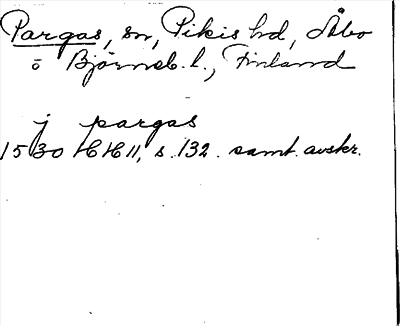 Pargas, sn, Pikis hd, Åbo
o Björneb. l., Finland
j pargas
1530 HH II, s. 132. samt. avskr.